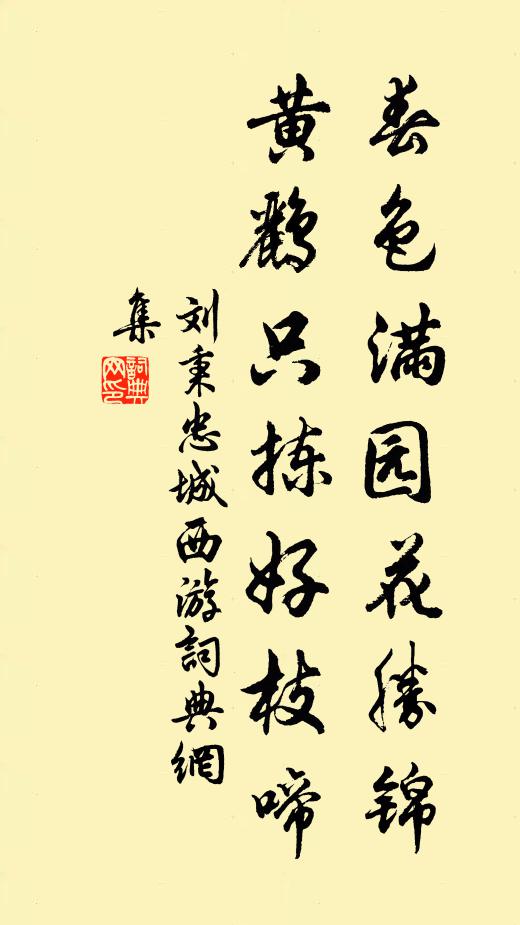 春色满园花勝锦
黄鹂只拣好枝啼
刘秉忠城西游詞典網
集
詞典
网印